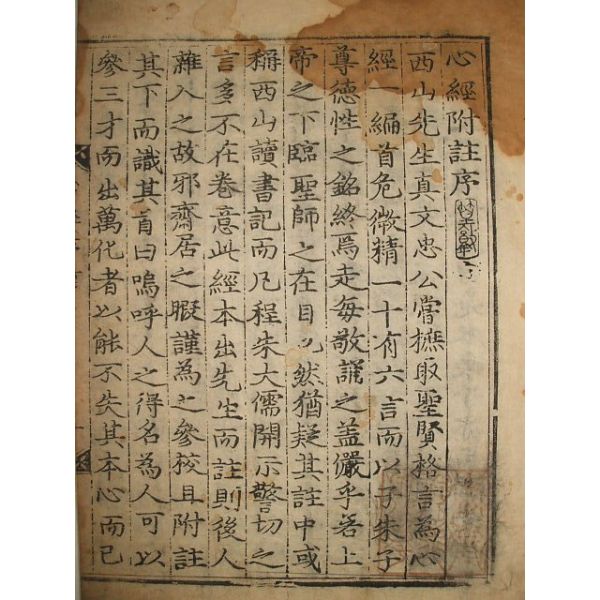 心經附註序
西山先生真文忠公嘗摭取聖賢格言為心
經一編首危微精一十有六言而以子朱子
尊德性之銘終焉走每敬誦之盖儼乎若上
帝之下臨聖師之在目也然猶疑其註中或
稱西山讀書記而凡程朱大儒開示警切之
言多不在卷意此經本出先生而註則後人
雜入之故邪齋居之暇謹為之參校且附註
其下而識其首曰嗚呼人之得名為人可以
參三才而出萬化者以能不失其本心而已